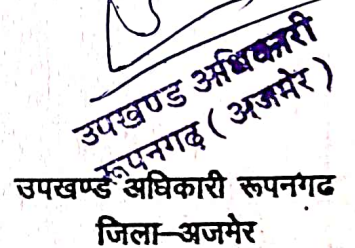 उपखण्ड अधिकारी
रूपनगढ (अजमेर)
उपखण्ड अधिकारी रूपनगढ
जिला–अजमेर